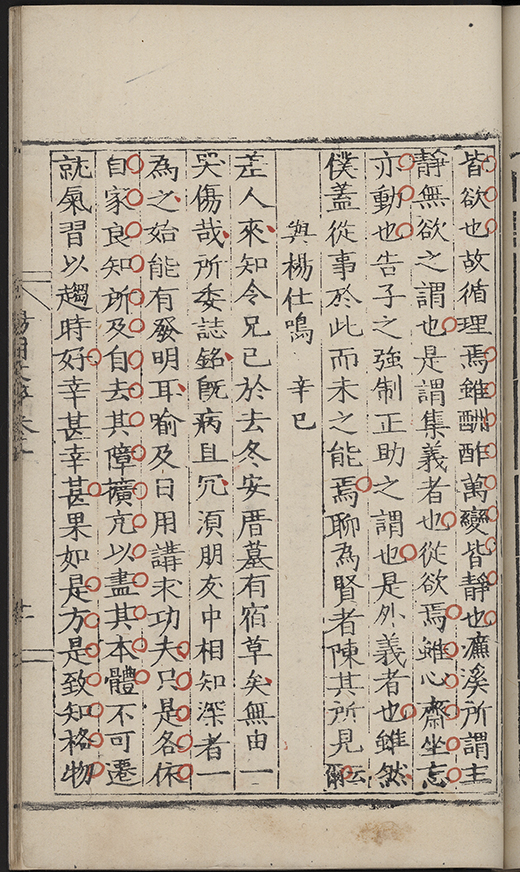 皆欲也故循理焉雖酬酢萬變皆靜也濂溪所謂主
靜無欲之謂也是謂集義者也從欲焉雖心齋坐忘
亦動也告子之強制正助之謂也是外義者也雖然
僕蓋從事於此而未之能焉聊為賢者陳其所見云爾
與楊仕鳴 辛巳
差人來知令兄已於去冬安厝墓有宿草矣無由一
哭傷哉所委誌銘旣病且冗須朋友中相知深者一
為之始能有發明耳喻及日用講求功夫只是各依
自家良知所及自去其障擴充以盡其本體不可遷
就氣習以趨時好幸甚幸甚果如是方是致知格物